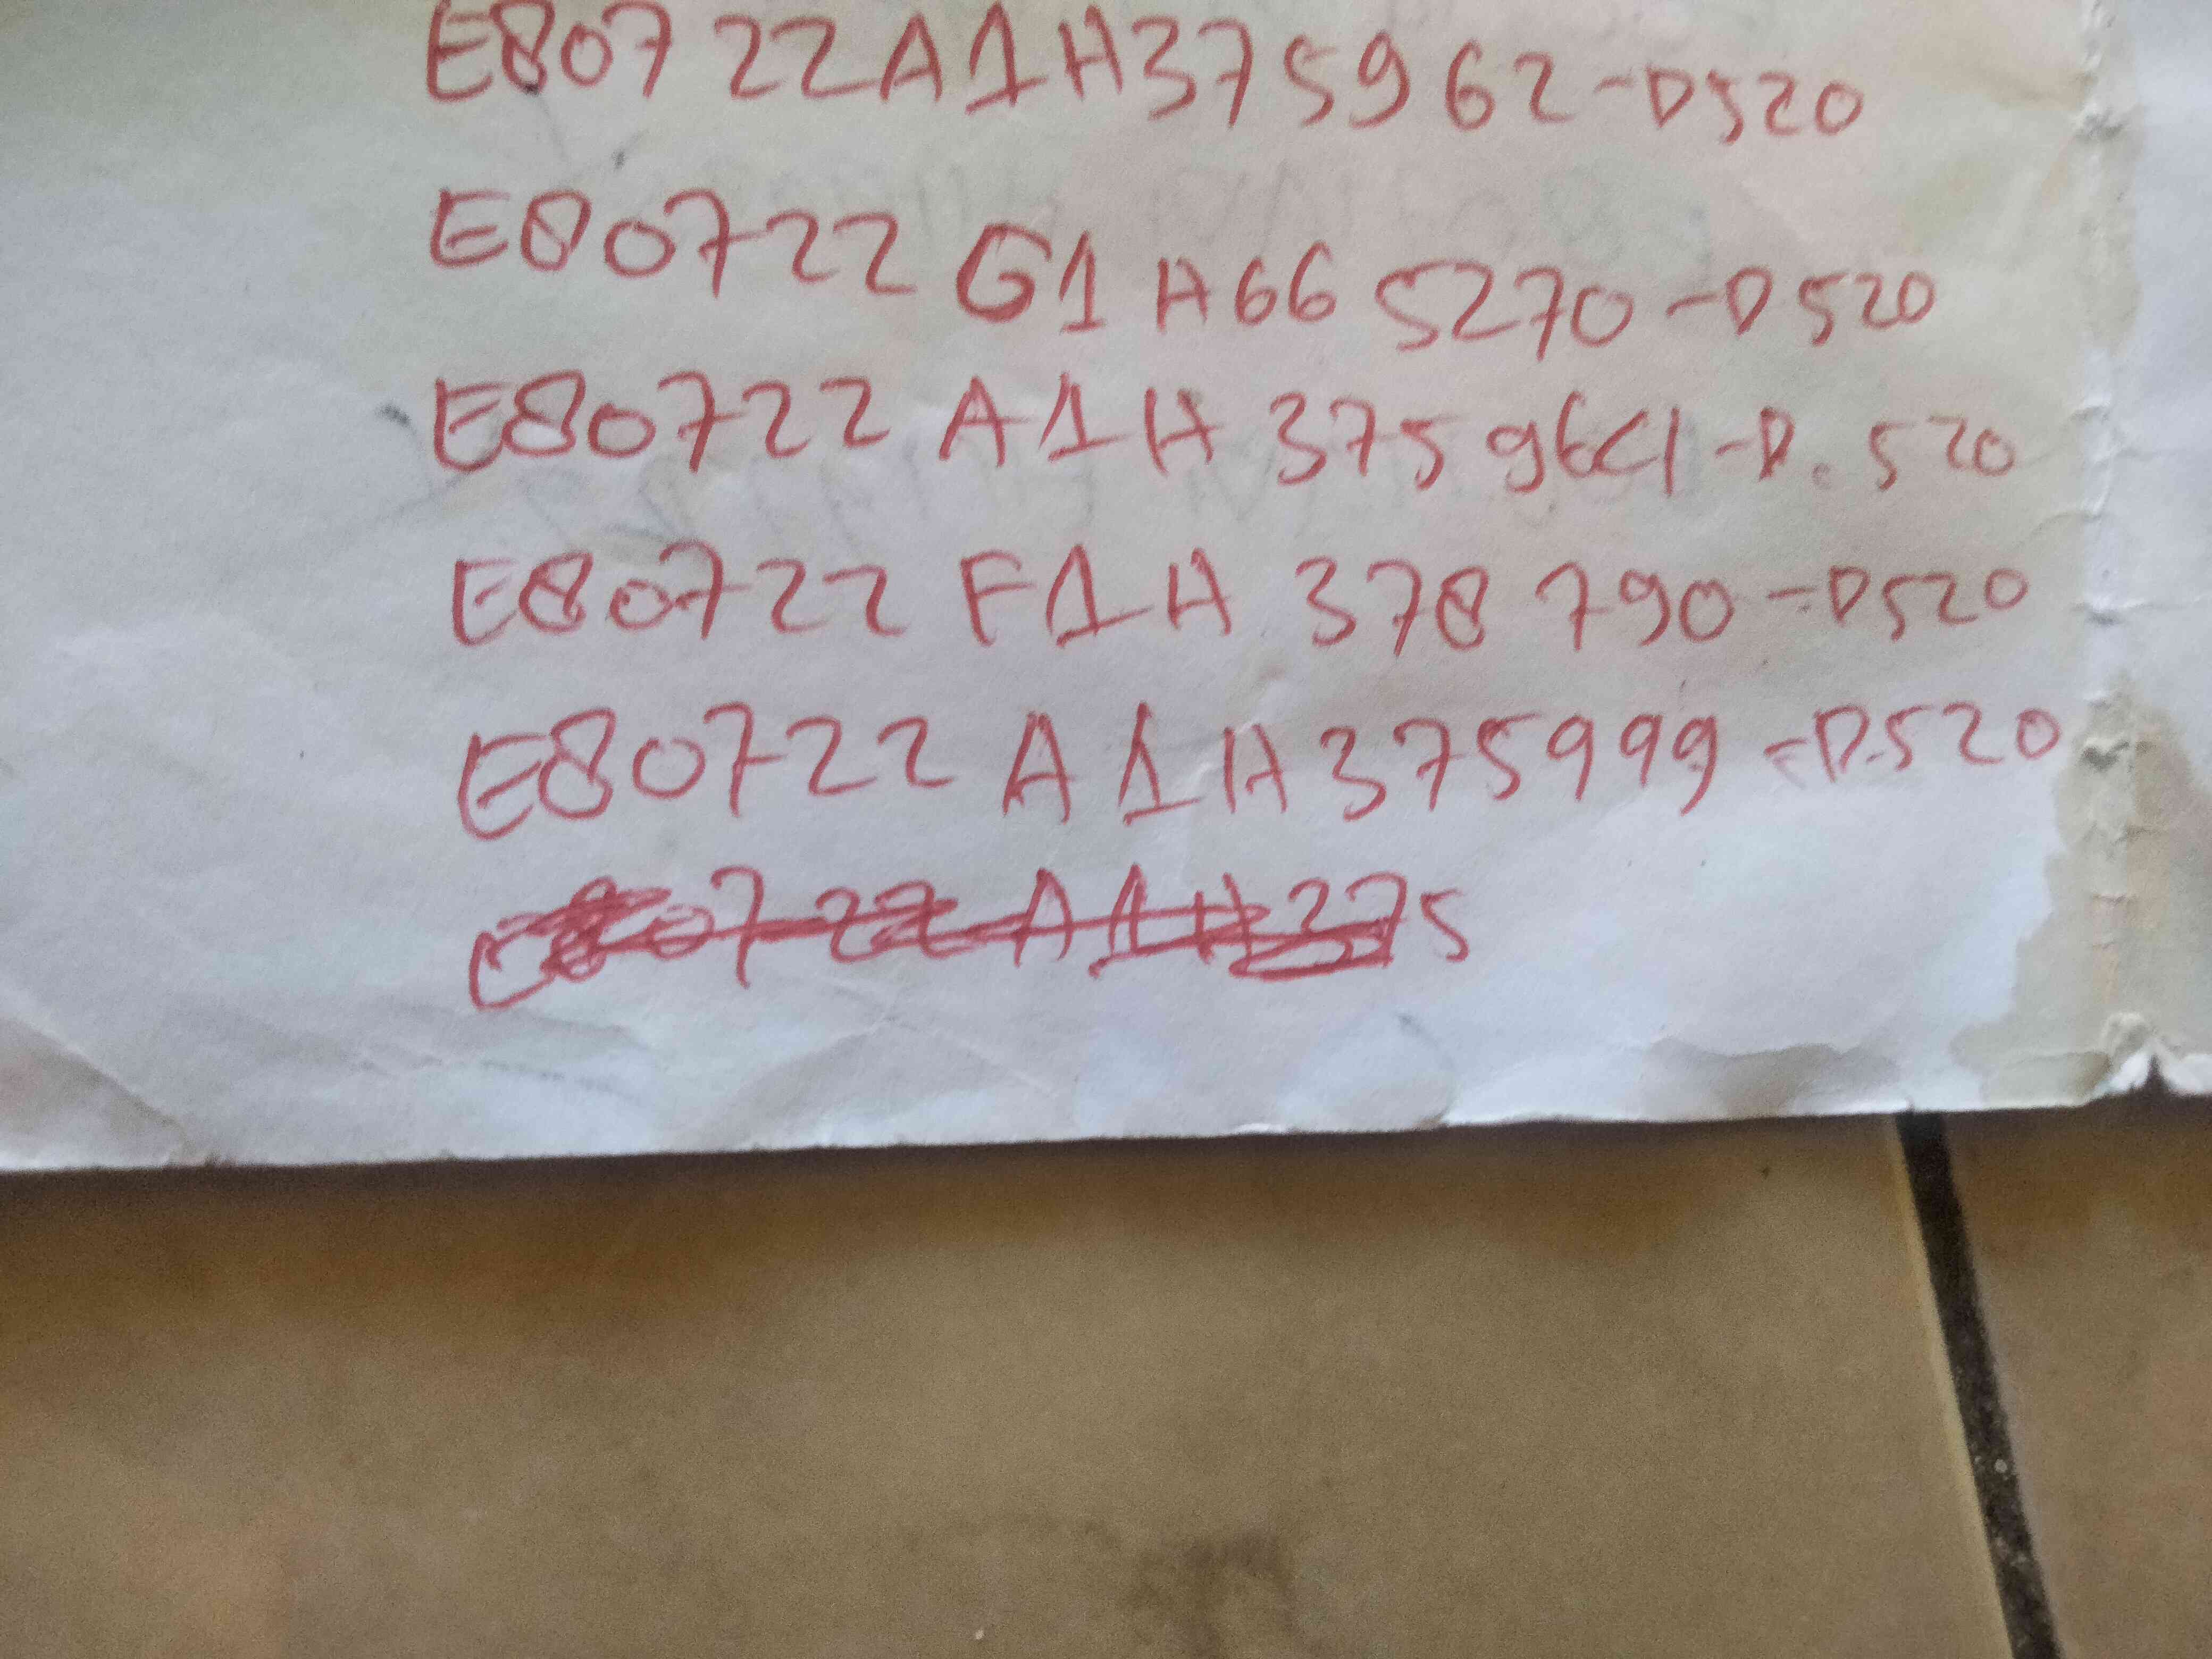 E80722A1H375962-D520
E80722 G1 H66 5270-D520
E80722 A1H 37596C1-D.520
E80722 F1H 378 790-D520
E80722 A1H375999-D.520
E80722 A1H375